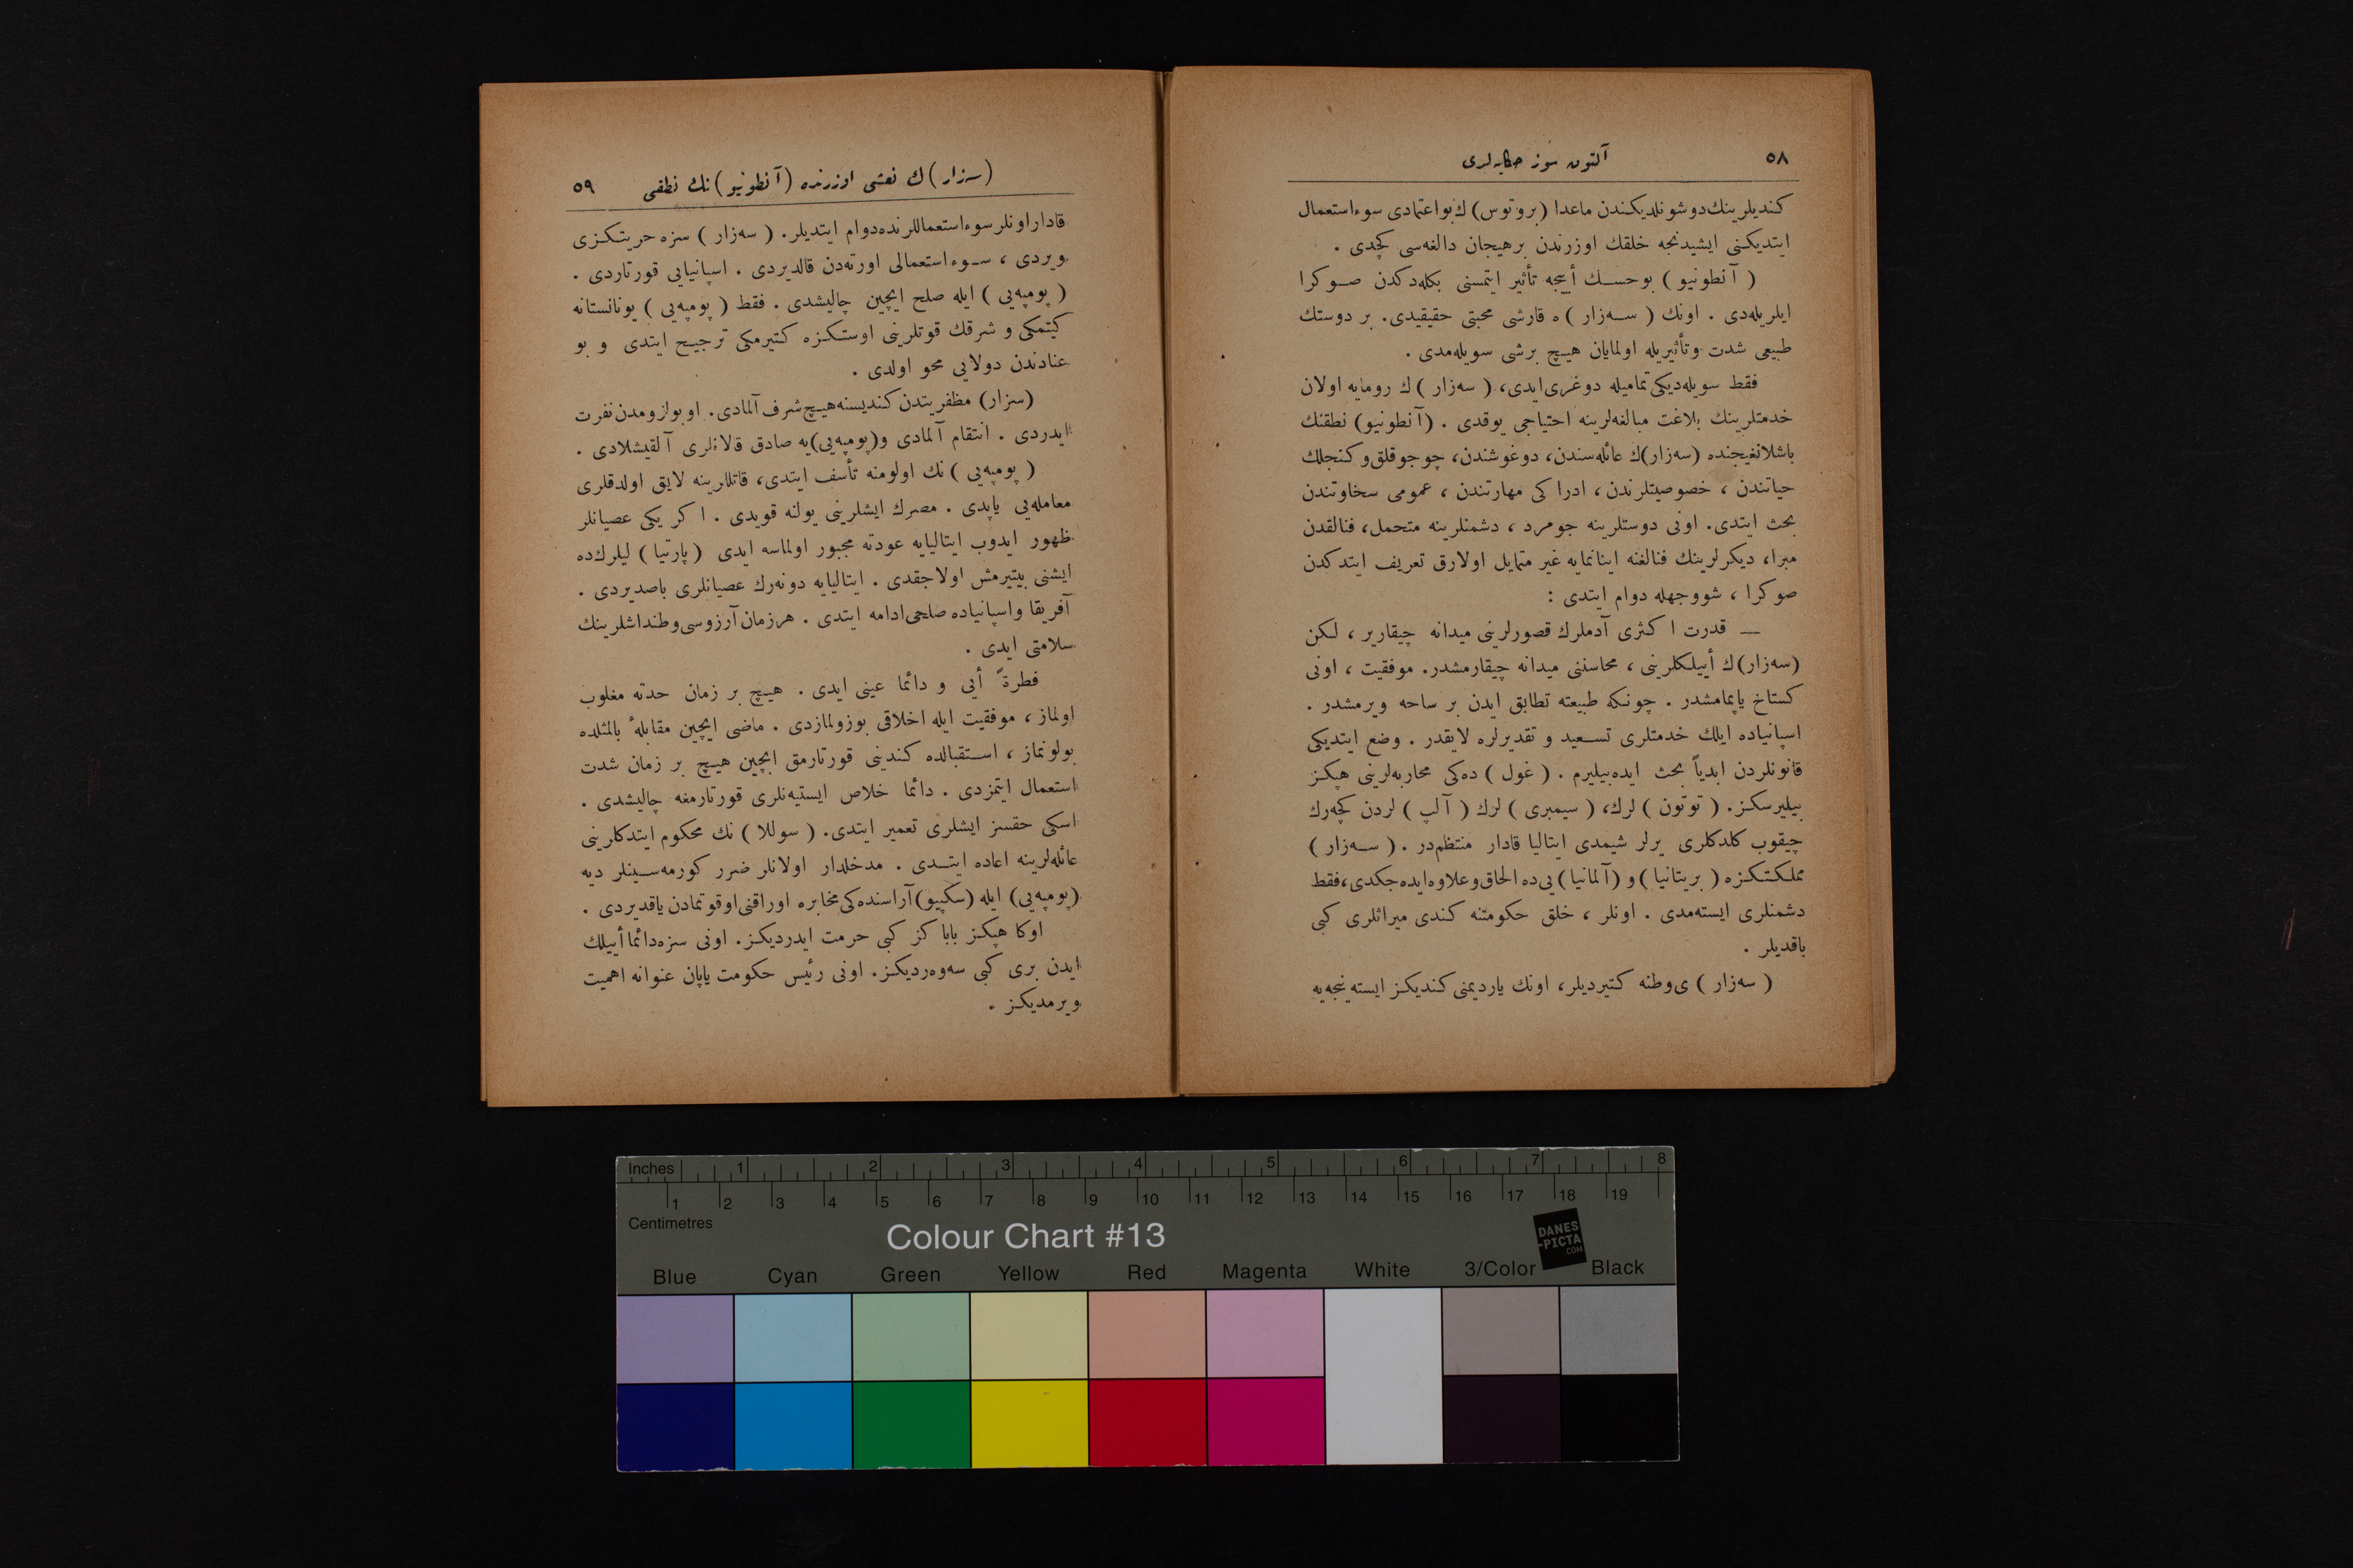 ٥٨
آلتون سوز حكايه‌لری
كنديلرينك دوشونلديكندن ماعدا (بروتوس) ك بواعتمادی سوء استعمال
ايتديكنی ايشيدنجه خلقك اوزرندن برهيجان دالغه‌سی كچدی .
( آنطونيو ) بوحسـك أييجه تأثير ايتمسنی بكله‌دكدن صـوكرا
ايلريله‌دی . اونك ( سـه‌زار ) ه قارشی محبتی حقيقيدی. بر دوستك
طبيعی شدت وتأثيريله اولمايان هيچ برشی سويله‌مدی .
فقط سويله‌ديكی تماميله دوغری ايدی، ( سه‌زار ) ك رومايه اولان
خدمتلرينك بلاغت مبالغه‌لرينه احتياجی يوقدی . (آنطونيو) نطقنك
باشلانغيجنده (سه‌زار)ك عائله‌سندن، دوغوشندن، چوجوقلق وكنجلك
حياتندن ، خصوصيتلرندن ، ادراكی مهارتندن ، عمومی سخاوتندن
بحث ايتدی. اونی دوستلرينه جومرد ، دشمنلرينه متحمل، فنالقدن
مبرا، ديكرلرينك فنالغنه اينانمايه غير متمايل اولارق تعريف ايتدكدن
صوكرا ، شووجهله دوام ايتدی :
— قدرت اكثری آدملرك قصورلرينی ميدانه چيقارير ، لكن
(سه‌زار)ك أييلكلرينی ، محاسننی ميدانه چيقارمشدر. موفقيت ، اونی
كستاخ ياپمامشدر . چونكه طبيعته تطابق ايدن بر ساحه ويرمشدر .
اسپانياده ايلك خدمتلری تسـعيد و تقديرلره لايقدر . وضع ايتديكی
قانونلردن ابدياً بحث ايده‌بيليرم . ( غول ) ده‌كی محاربه‌لرينی هپكز
بيليرسكز. ( توتون ) لرك، ( سيمبری ) لرك ( آلپ ) لردن كچه‌رك
چيقوب كلدكلری يرلر شيمدی ايتاليا قادار منتظم‌در . ( سـه‌زار )
مملكتكزه ( بريتانيا ) و ( آلمانيا ) يی ده الحاق وعلاوه ايده‌جكدی، فقط
دشمنلری ايسته‌مدی . اونلر ، خلق حكومتنه كندی ميراثلری كبی
باقديلر .
( سه‌زار ) ی وطنه كتيرديلر، اونك يارديمنی كنديكز ايسته‌ينجه‌يه
(سه‌زار) ك نعشی اوزرنده (آنطونيو) نك نطقی
٥٩
قادار اونلر سوء استعماللرنده دوام ايتديلر. ( سه‌زار ) سزه حريتكزی
ويردی ، سـوء استعمالی اورته‌دن قالديردی . اسپانيايی قورتاردی .
( پومپه‌يی ) ايله صلح ايچين چاليشدی . فقط ( پومپه‌يی ) يونانستانه
كيتمكی و شرقك قوتلرينی اوستكزه كتيرمكی ترجيح ايتدی و بو
عنادندن دولايی محو اولدی .
(سزار) مظفريتدن كنديسنه هيچ شرف آلمادی. او بولزومدن نفرت
ايدردی . انتقام آلمادی و(پومپه‌يی)يه صادق قالانلری آلقيشلادی .
( پومپه‌يی ) نك اولومنه تأسف ايتدی، قاتللرينه لايق اولدقلری
معامله‌يی ياپدی . مصرك ايشلرينی يولنه قويدی . اكر يكی عصيانلر
ظهور ايدوب ايتاليايه عودته مجبور اولماسه ايدی ( پارتيا ) ليلرك‌ده
ايشنی بيتيرمش اولاجقدی . ايتاليايه دونه‌رك عصيانلری باصديردی .
آفريقا واسپانياده صلحی ادامه ايتدی . هرزمان آرزوسی وطنداشلرينك
سلامتی ايدی .
فطرةً أيی و دائما عينی ايدی . هيچ بر زمان حدته مغلوب
اولماز ، موفقيت ايله اخلاقی بوزولمازدی . ماضی ايچين مقابلهٔ بالمثلده
بولونماز ، اسـتقبالده كندينی قورتارمق ايچين هيچ بر زمان شدت
استعمال ايتمزدی . دائما خلاص ايستيه‌نلری قورتارمغه چاليشدی .
اسكی حقسز ايشلری تعمير ايتدی. ( سوللا ) نك محكوم ايتدكلرينی
عائله‌لرينه اعاده ايتـدی . مدخلدار اولانلر ضرر كورمه‌سـينلر ديه
(پومپه‌يی) ايله (سكپيو) آراسنده‌كی مخابره اوراقنی اوقوتمادن ياقديردی .
اوكا هپكز باباكز كبی حرمت ايدرديكز. اونی سزه دائما أييلك
ايدن بری كبی سه‌وه‌رديكز. اونی رئيس حكومت ياپان عنوانه اهميت
ويرمديكز .
Inches 1 2 3 4 5 6 7 8
1 2 3 4 5 6 7 8 9 10 11 12 13 14 15 16 17 18 19
Centimetres
Colour Chart #13
DANES
-PICTA
.COM
Blue Cyan Green Yellow Red Magenta White 3/Color Black